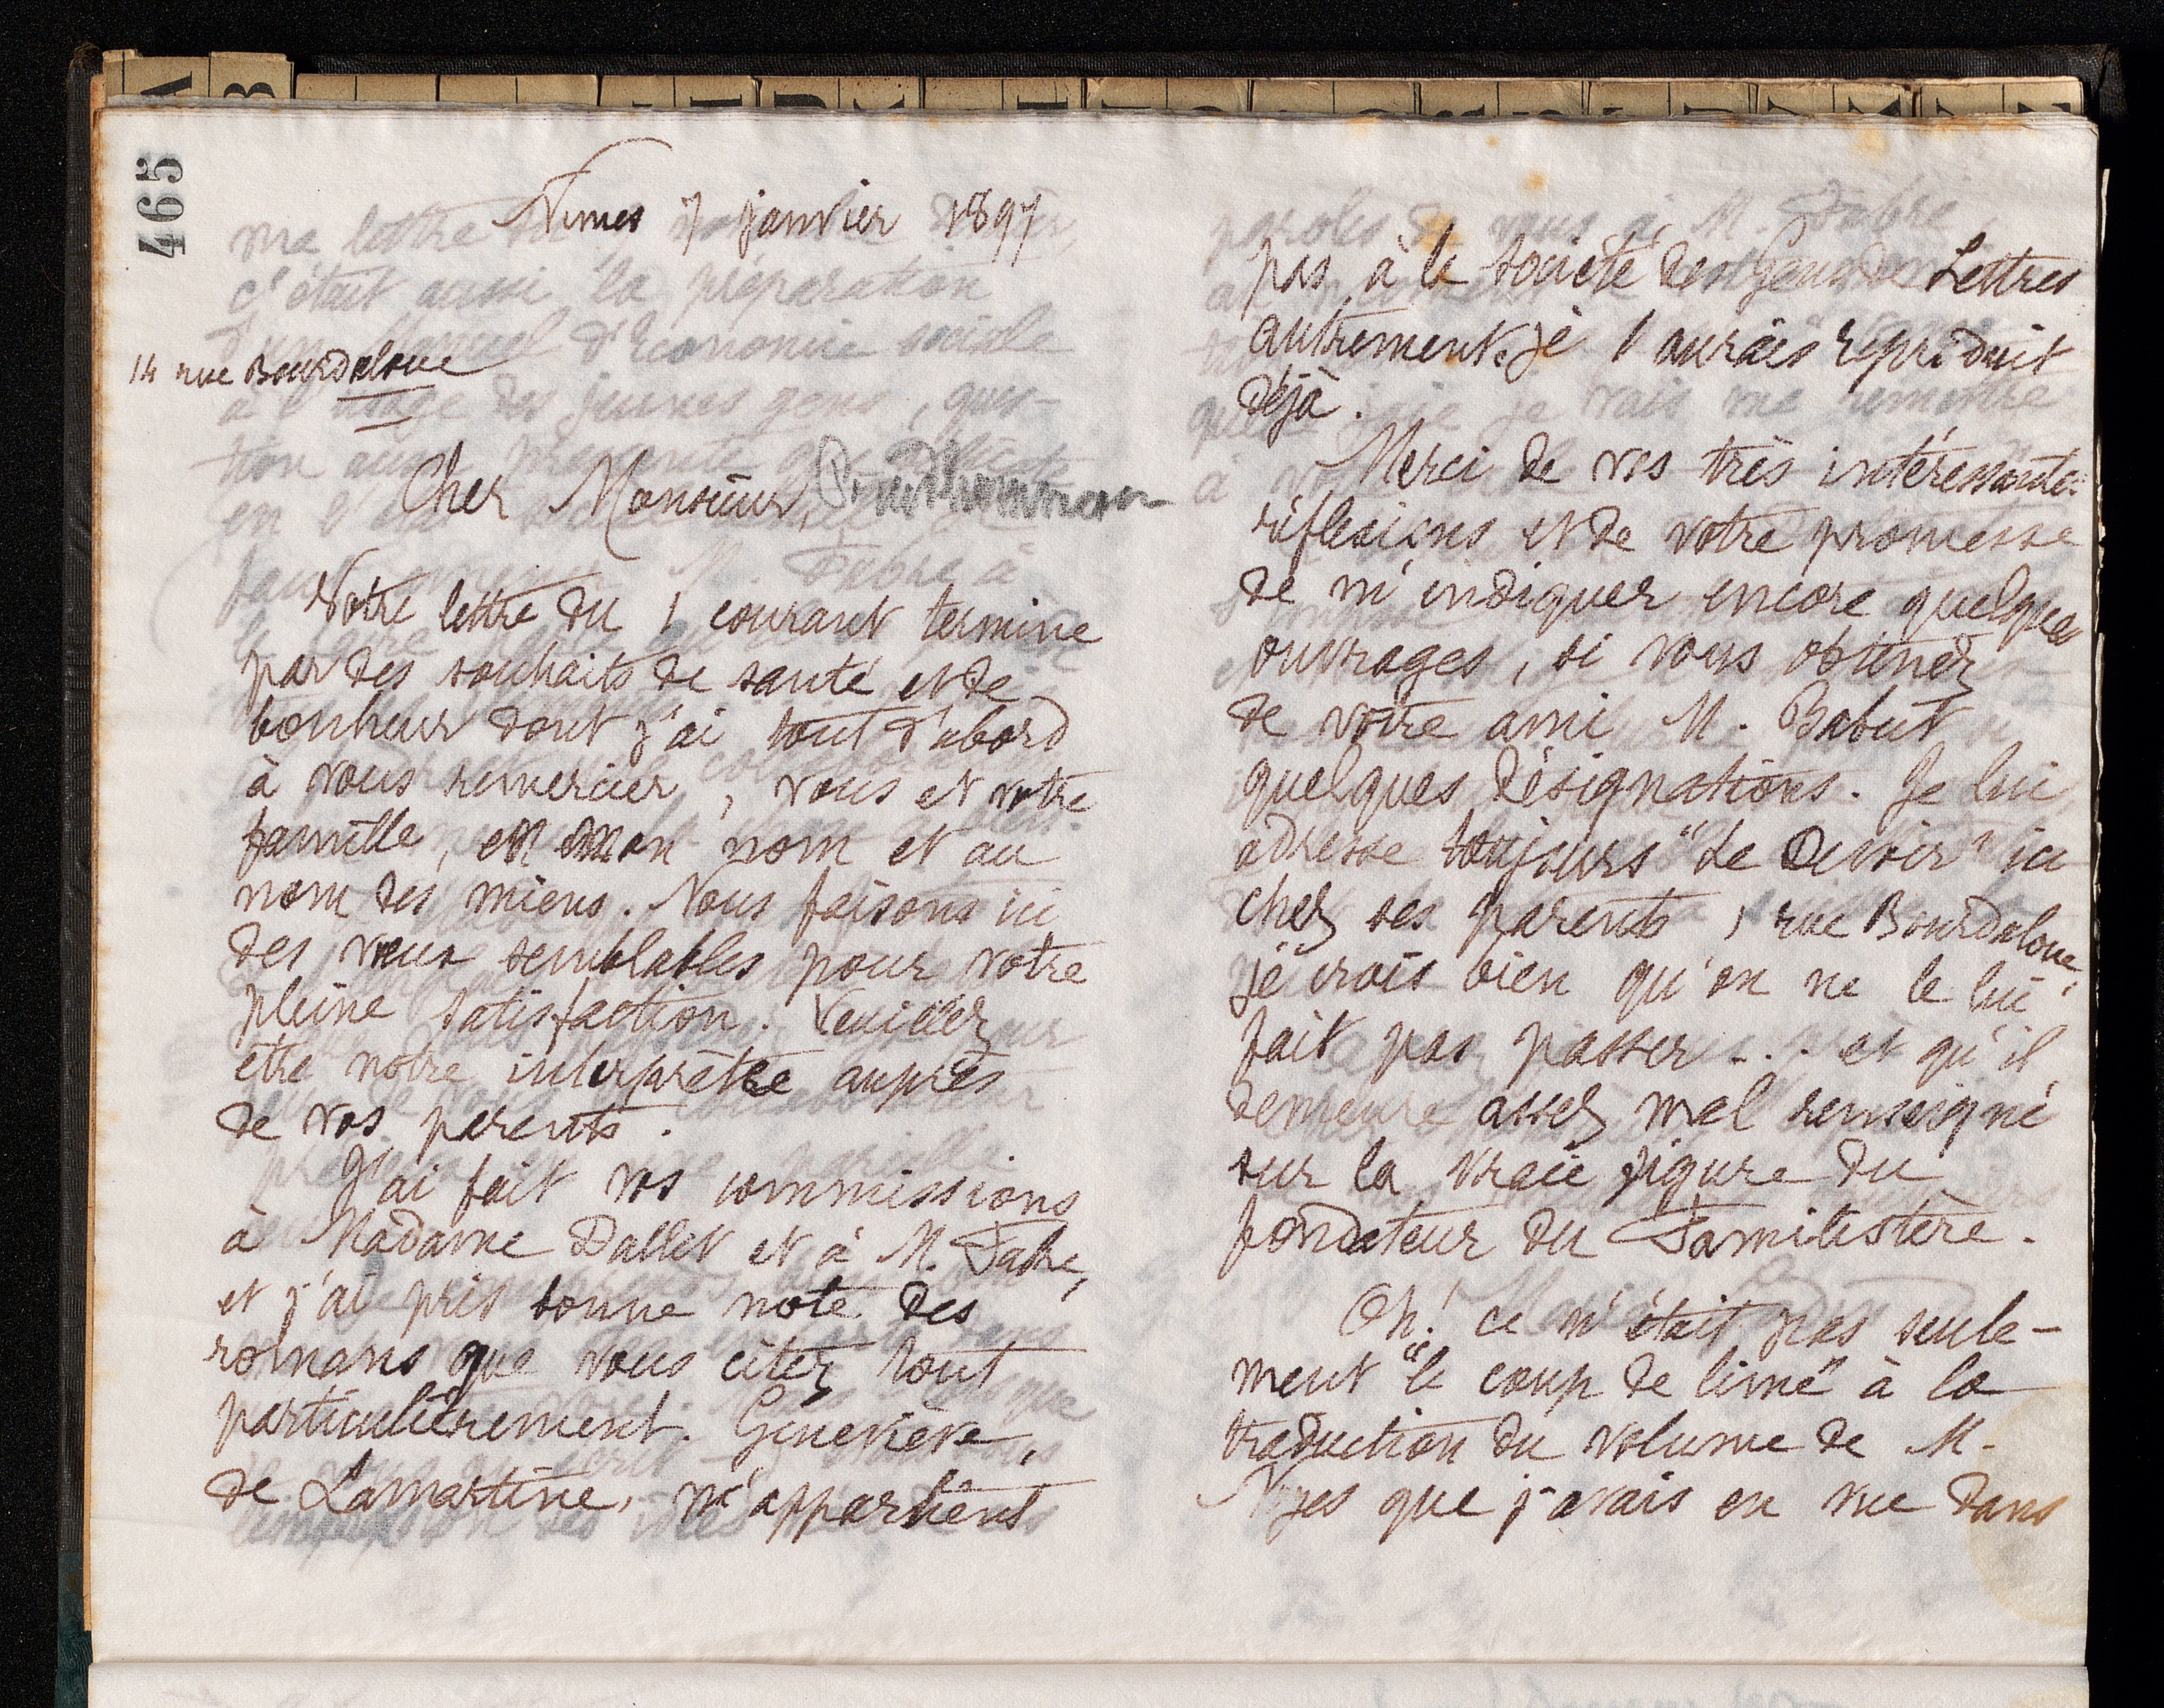 465
Nimes 7 janvier 1897
14 rue Bourdaloue
Cher Monsieur, Prudhommeaux
Votre lettre du 1 courant termine
par des souhaits de santé et de
bonheur dont j'ai tout d'abord
à vous remercier, vous et votre
famille, en mon nom et au
nom des miens. Nous faisons ici
des vœux semblables pour votre
pleine satisfaction. Veuillez
être notre interprète auprès
de vos parents.
J'ai fait vos commissions
à Madame Dallet et à M. Fabre,
et j'ai pris bonne note des
romans que vous citez tout
particulièrement. Geneviève,
de Lamartine, n'appartient
pas à la Société des Gens de Lettres
autrement je l'aurais reproduit
déjà.
Merci de vos très intéressantes
réflexions et de votre promesse
de m'indiquer encore quelques
ouvrages, si vous obtenez
de votre ami M. Babut
quelques désignations. Je lui
adresse toujours "Le Devoir" ici
chez ses parents, rue Bourdaloue,
je crois bien qu'on ne le lui
fait pas passer... et qu'il
demeure assez mal renseigné
sur la vraie figure du
fondateur du Familistère.
Oh! ce n'était pas seule-
ment "le coup de lime" à la
traduction du volume de M.
Noyes que j'avais en vue dans